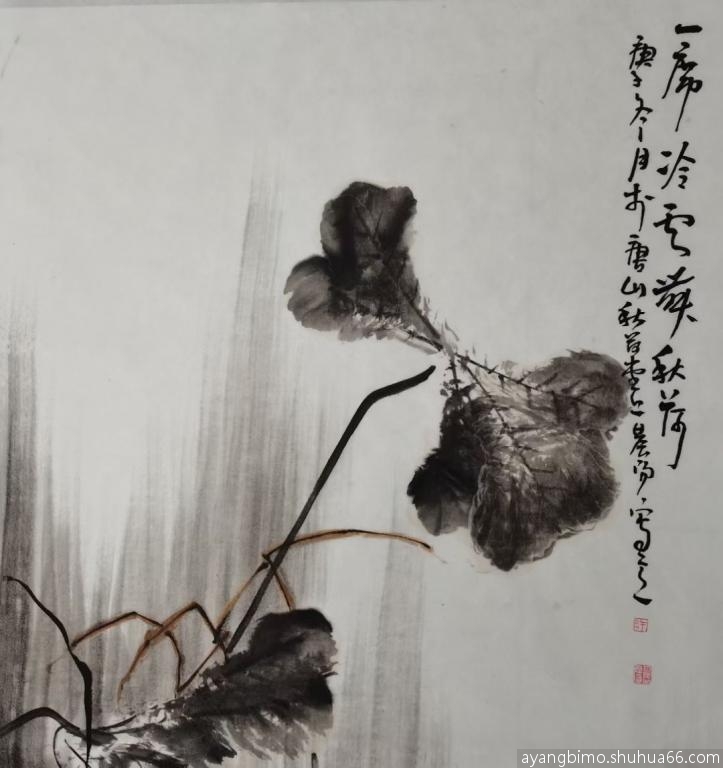 一席冷云农秋荷
庚子冬月于唐山秋荷堂上晨阳写之
ayangbimo.shuhua66.com